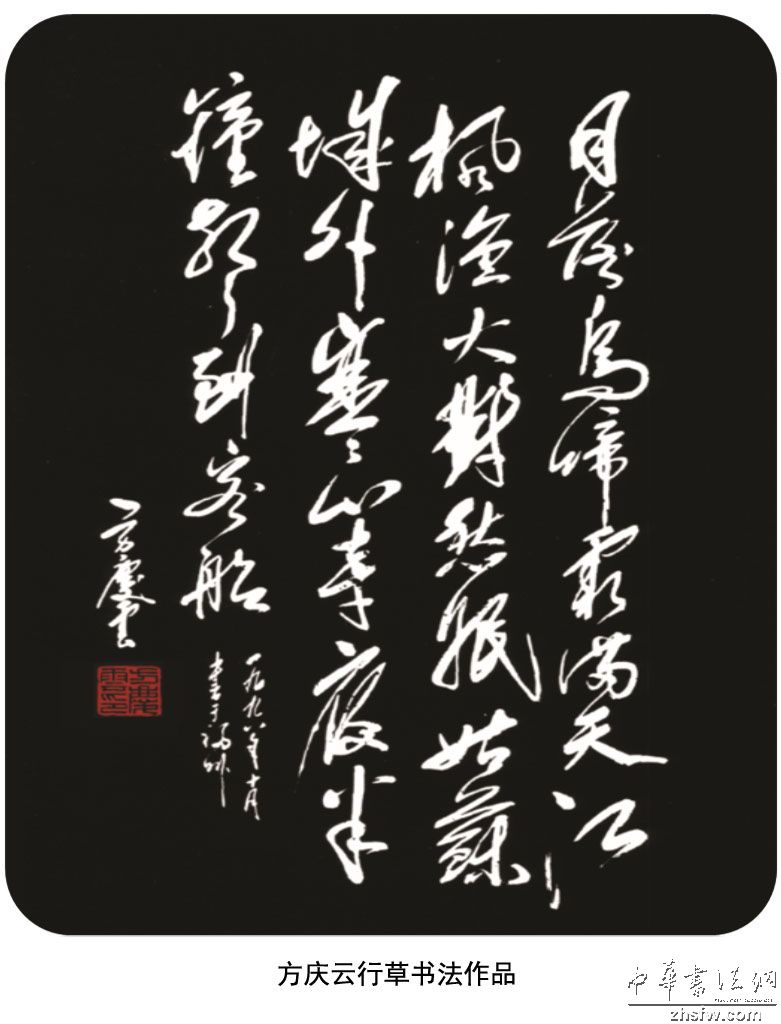 月落烏啼霜滿天江
楓漁火對愁眠姑蘇
城外寒山寺夜半
鐘聲到客船
一九九八年十月
書于福州
方慶云
方庆云行草书法作品
中華書法網
zhsfw.com